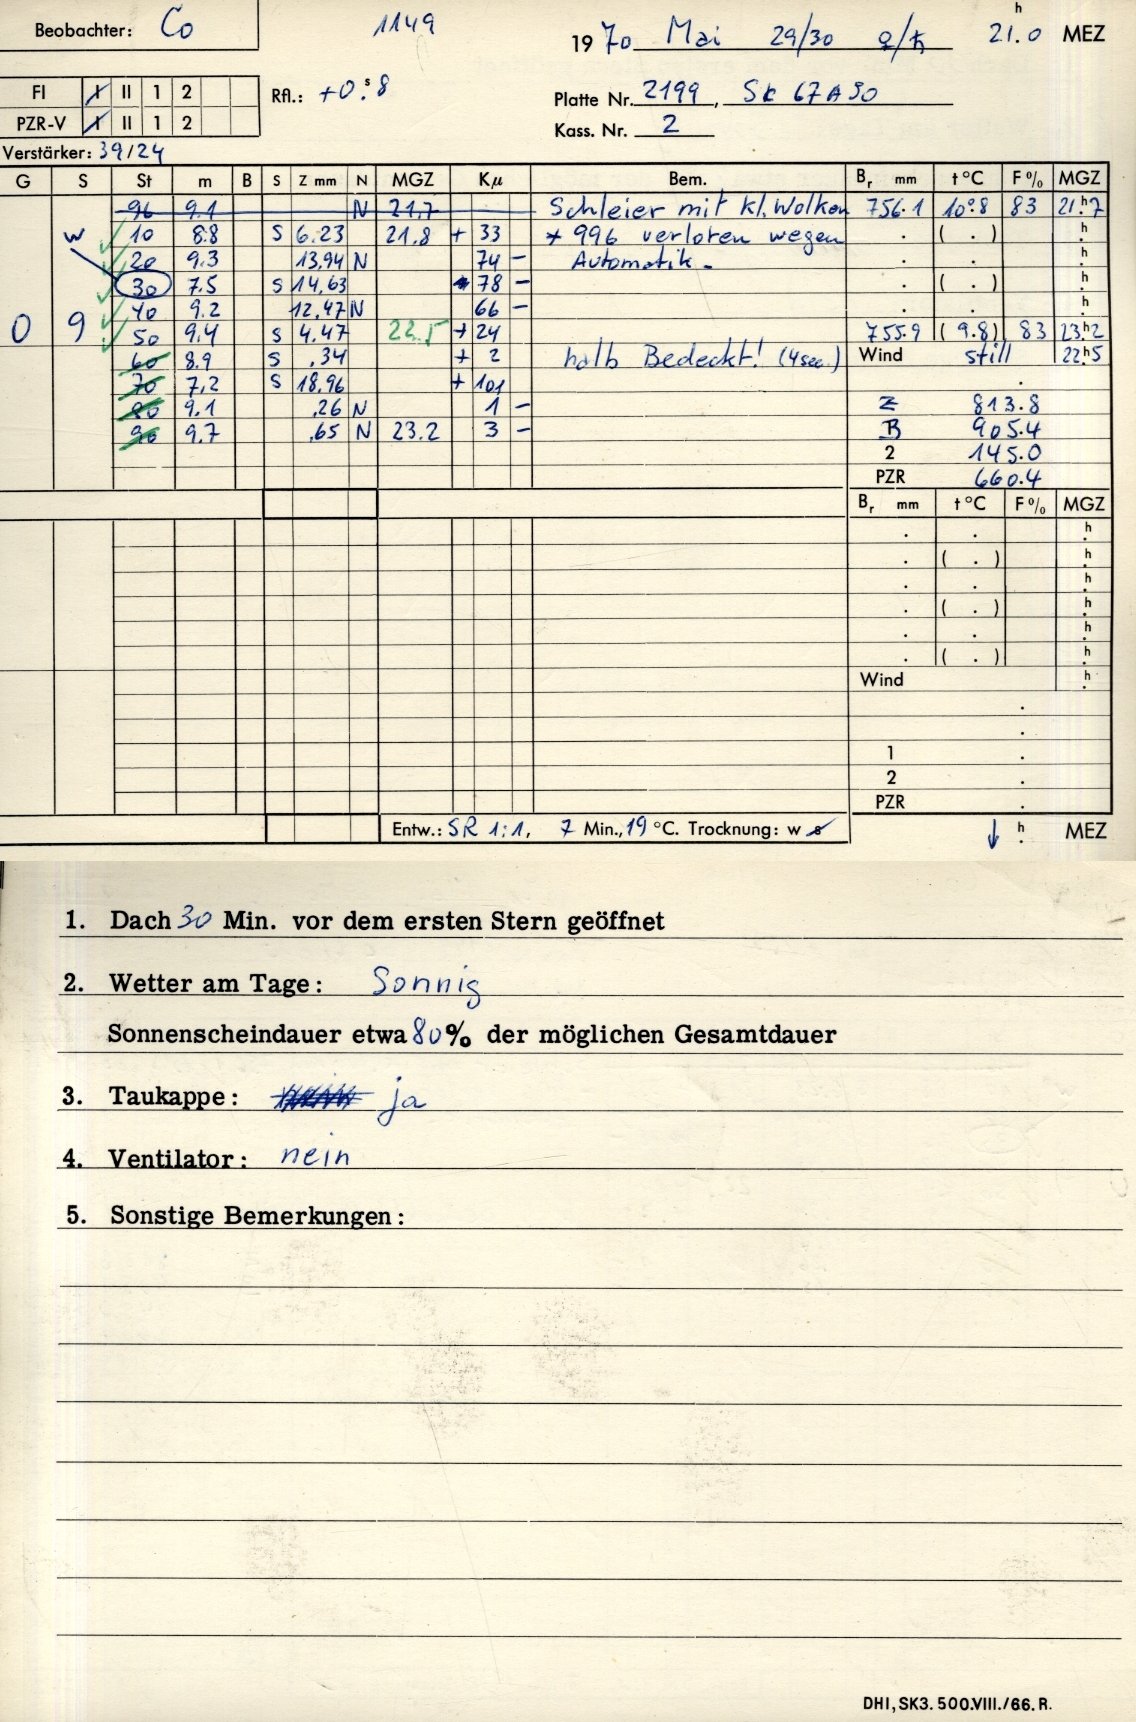 Beobachter: Co 1149 1970 Mai 29/30 ♀/♄ 21.0 h MEZ
FI I II 1 2 Rfl.: +0.s8 Platte Nr. 2199, SK 67A50
PZR-V I II 1 2 Kass. Nr. 2
Verstärker: 39/24
G S St m B S Z mm N MGZ Kμ Bem. Br mm t °C F % MGZ
96 9.1 N 21.7 Schleier mit kl. Wolken 756.1 10.8 83 21.h7
w 10 8.8 S 6.23 21.8 + 33 * 996 verloren wegen . ( . ) h
20 9.3 13.94 N 74 - Automatik. . . h
30 7.5 S 14,63 78 - . ( . ) h
40 9.2 12,47 N 66 - . . h
0 9 50 9.4 S 4.47 22.5 + 24 755.9 ( 9.8) 83 23.h2
60 8.9 S .34 + 2 halb Bedeckt! (4sec.) Wind still 22h5
70 7.2 S 18.96 + 101 .
80 9.1 .26 N 1 - Z 813.8
90 9.7 .65 N 23.2 3 - B 905.4
2 145.0
PZR 660.4
Br mm t °C F % MGZ
. . h
. ( . ) h
. . h
. ( . ) h
. . h
. ( . ) h
Wind h
.
.
1 .
2 .
PZR .
Entw.: SR 1:1, 7 Min., 19 °C. Trocknung: w s ↓ h MEZ
1. Dach 30 Min. vor dem ersten Stern geöffnet
2. Wetter am Tage: Sonnig
Sonnenscheindauer etwa 80% der möglichen Gesamtdauer
3. Taukappe: ja
4. Ventilator: nein
5. Sonstige Bemerkungen:
DHI, SK3. 500.VIII./66. R.